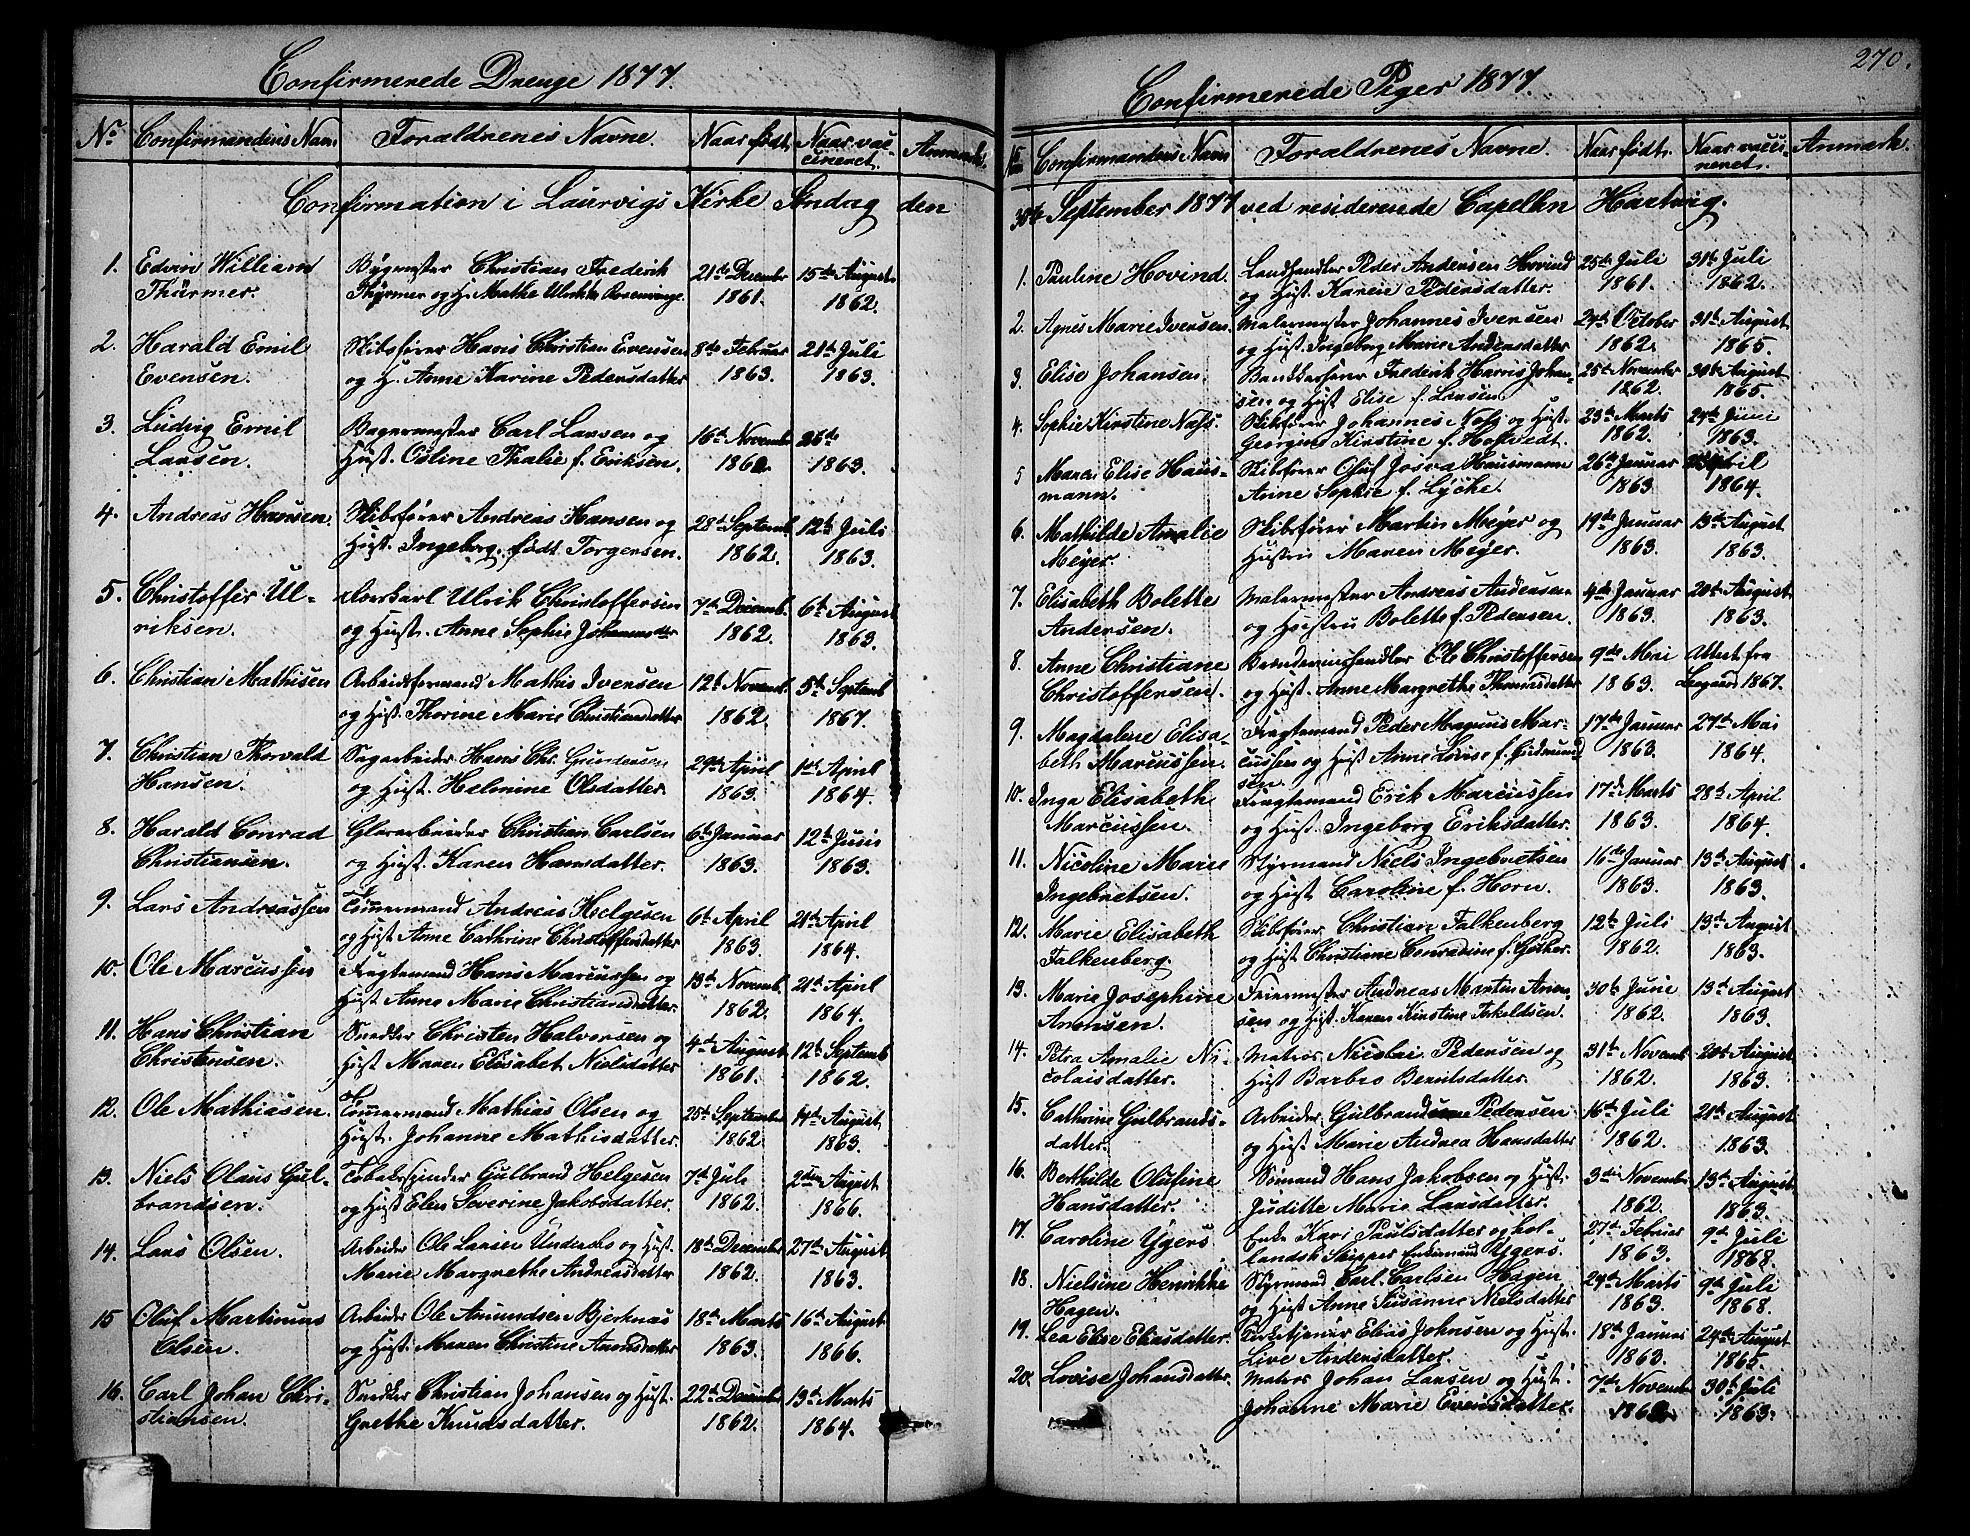 Confirmerede Drenge 1877.
No Confirmandens Navn Foraldrenes Navne. Naar født. Naar vac-
cineret. Anmærk.
Confirmation i Laurvigs Kirke Søndag den
1. Edvin William Bygmester Christian Frederik 21de December 15de August
Thürmer. Thürmer og H. Mathe Ulrikke Rosenvinge. 1861. 1862.
2. Harald Emil Skibsfører Hans Christian Evensen 8de Februar 21de Juli
Evensen. og H. Anne Karine Pedersdatter 1863. 1863.
3. Ludvig Emil Bagermester Carl Larsen og 16de November 26de
Larsen. Hust. Osline Thalie f. Eriksen. 1862 1863.
4. Andreas Hansen. Skibsfører Andreas Hansen og 28de Septemb. 12te Juli
Hust. Ingeborg født Torgersen. 1862. 1863.
5. Christoffer Ul- Ulrik Christoffersen 7de Decemb. 6te August
riksen. og Hust. Anne Sophie Johannesdtr 1862. 1863.
6. Christian Mathisen Arbeidsformand Mathis Iversen 12te Novemb. 5te Septemb
og Hust. Thorine Marie Christiansdatter 1862. 1867.
7. Christian Thorvald Sagarbeider Hans Chr. Gundersen 29de April 1ste April
Hansen. og Hust. Helmine Olsdatter. 1863. 1864.
8. Harald Conrad Glasarbeider Christian Carlsen 6te Januar 12te Juni
Christiansen. og Hust. Karen Hansdatter. 1863. 1863.
9. Lars Andreassen Tømmermand Andreas Helgesen 6te April 21de April
og Hust Anne Cathrine Christoffersdatter 1863. 1864.
10. Ole Marcussen Fragtemand Hans Marcussen og 13de Novemb. 21de April
Hust. Anne Marie Christiansdatter. 1862. 1864.
11. Hans Christian Snedker Christen Halvorsen og 4de August 12te Septemb
Christensen. Hust Maren Elisabet Nielsdatter 1861. 1862.
12. Ole Mathiasen. Tømmermand Mathias Olsen og 25de September 14de August
Hust. Johanne Mathisdatter. 1862. 1863.
13. Niels Olaus Gul- Tobakspinder Gulbrand Helgesen 7de Juli 2den August
brandsen. og Hust Elen Severine Jakobsdatter. 1862. 1866.
14. Lars Olsen. Arbeider Ole Larsen Undersbo og Hust. 18de December 27de August
Marie Margrethe Andreasdatter 1862. 1863.
15 Oluf Martinus Arbeider Ole Amundsen Bjerknæs 18de Marts 16de August
Olsen. og Hust. Maren Christine Amundsdatter 1863. 1866.
16. Carl Johan Chri- Snedker Christian Johansen og Hust. 22de December 19de Marts
stiansen. Grethe Knudsdatter. 1862. 1864.
270.
Confirmerede Piger 1877.
No Confirmandens Navn Foraldrenes Navne. Naar født. Naar vacci-
neret. Anmærk.
30te September 1877 ved residerende Capellan Hartvig.
1. Pauline Hovind. Landhandler Peder Andersen Hovind 25de Juli 31te Juli
og Hust. Karen Pedersdatter. 1861. 1862.
2. Agnes Marie Iversen. Malermester Johannes Iversen 24de October 31te August
og Hust. Ingeborg Marie Andersdatter 1862. 1865.
3. Elise Johansen. Frederik Harris Johan- 25de November 30te August
sen og Hust Elise f. Larsen. 1862. 1865.
4. Sophie Kirstine Næss. Skibsfører Johannes Næss og Hust. 23de Marts 24de Juni
Georgine Kirstine f. 1862. 1863.
5 Maren Elise Haus- Skibsfører Oluf Josva Hausmann 26de Januar April
mann. Anne Sophie f. Lycke. 1863. 1864.
6. Mathilde Amalie Skibsfører Martin Meyer og 19de Januar 13de August
Meyer. Hustru Maren Meyer. 1863. 1863.
7. Elisabeth Bolette Malermester Andreas Andersen 4de Januar 20de August
Andersen. og Hustru Bolette f. Pedersen. 1863. 1863.
8. Anne Christiane Brændevinshandler Ole Christoffersen 9de Mai Attest fra
Christoffersen. og Hust. Anne Margrethe Thomasdatter 1863. 1867.
9. Magdalene Elisa- Fragtemand Peder Magnus Mar- 17de Januar 27de Mai
beth Marcussen. cussen og Hust Anne Lovise f. Gudmund 1863. 1864.
sen
10. Inga Elisabeth Fragtemand Erik Marcussen 17de Marts 28de April
Marcussen. og Hust. Ingeborg Eriksdatter. 1863. 1864.
11. Nicoline Marie Styrmand Niels Ingebretsen 16de Januar 13de August
Ingebretsen. og Hust Caroline f. Horn. 1863. 1863.
12. Marie Elisabeth Skibsfører Christian Falkenberg 12te Juli 13de August
Falkenberg. og Hust Christiane Conradine f. 1862. 1863.
13. Marie Josephine Feiermester Andreas Martin Aron- 30te Juni 13de August
Aronsen. sen og Hust. Karen Kirstine Torkeldsen. 1862. 1863.
14. Petra Amalie Ni- Matros Nicolai Pedersen og 31te Novemb 20de August
colaisdatter. Hust Barbro Berntsdatter. 1862. 1863.
15. Cathrine Gulbrands- Arbeider Gulbrand Pedersen 16de Juli 21de August
datter. og Hust Marie Andrea Hansdatter 1862. 1863.
16. Berthilde Olufine Sømand Hans Jakobsen og Hust. 3die November 13de August
Hansdatter. Juditte Marie Larsdatter. 1862. 1863.
17. Caroline Ygers Enke Kari Paulsdatter og hol- 27de Februar 9de Juli
landsk Skipper Ferdinand Ygers. 1863. 1868.
18. Nielsine Henrikke Styrmand Carl Carlsen Hagen 24de Marts 9de Juli
Hagen. og Hust Anne Susanne Nielsdatter 1863. 1868.
19. Lea Elise Eliasdatter. Kirketjener Elias Johnsen og Hust. 18de Januar 24de August
Live Andersdatter. 1863. 1865.
20. Lovise Johansdatter. Matros Johan Larsen og Hust. 7de Novemb 30te Juli
Johanne Marie Evensdatter. 1862. 1863.